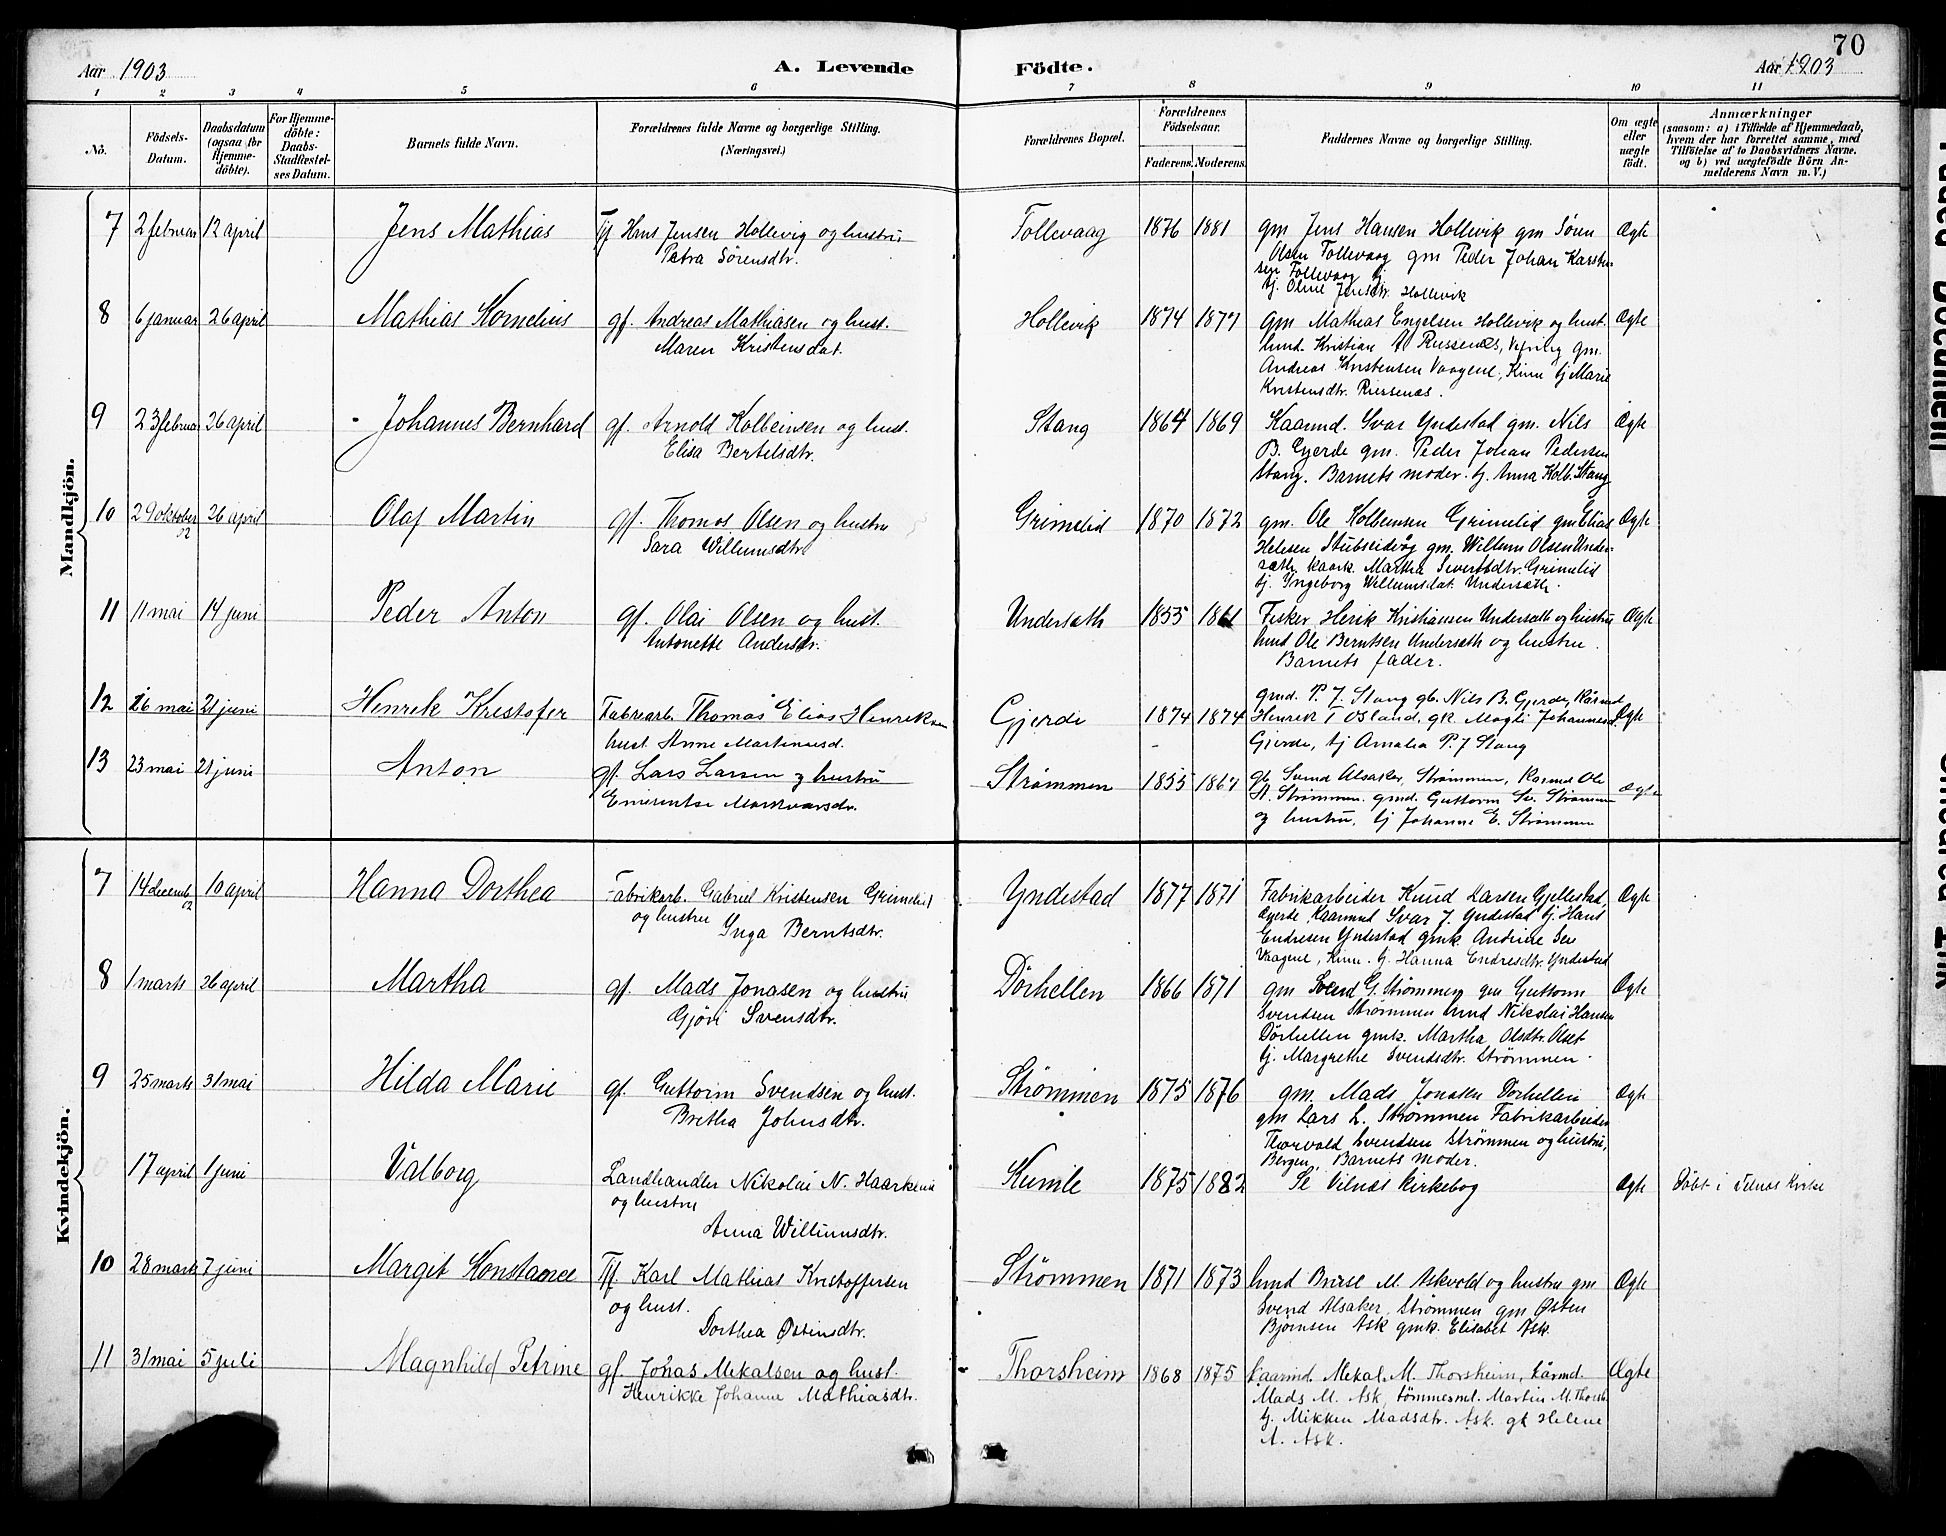 70
Aar 1903
A. Levende Födte.
Aar 1903
1 2 3 4 5 6 7 8 9 10 11
No.
Födsels-Datum.
Daabsdatum (ogsaa for Hjemme-döbte).
For Hjemme-döbte: Daabs-Stadfæstel-ses Datum.
Barnets fulde Navn.
Forældrenes fulde Navne og borgerlige Stilling.
(Næringsvei.)
Forældrenes Bopæl.
Forældrenes Födselsaar.
Faderens. Moderens.
Faddernes Navne og borgerlige Stilling.
Om ægte eller uægte födt.
Anmærkninger
(saasom: a) i Tilfælde af Hjemmedaab,
hvem der har forrettet samme, med
Tilföielse af to Daabsvidners Navne.
og b) ved uægtefödte Börn An-
melderens Navn m. V.)
Mandkjön.
7 2 februar 12 april Jens Mathias Hans Jensen Hollevig og hustru Tollevaag 1876 1881 gm Jens Hansen Hollevik gm Sören Ægte
Petra Sörensdtr. Olsen Tollevaag gm Peder Johan Karsten-
sen Tollevaag
tj. Oline Jensdtr. Hollevik
8 6 januar 26 april Mathias Kornelius gf. Andreas Mathiasen og hust. Hollevik 1874 1877 gm Mathias Engelsen Hollevik og hust. Ægte
Maren Kristensdat. Kristian Russenæs, gm.
Andreas Kristensen Vaagene, Kinn tj Marie
Kristensdtr. Russenæs.
9 23 februar 26 april Johannes Bernhard gf. Arnold Kolbeinsen og hust. Stang 1864 1869 Kaarmd. Ivar Yndestad gm. Nils Ægte
Elisa Bertelsdtr. B. Gjerde gm. Peder Johan Pedersen
Stang. Barnets moder. tj. Anna Kolb. Stang
10 29 oktober 02 26 april Olaf Martin gf. Thomas Olsen og hustru Grimelid 1870 1872 gm. Ole Kolbeinsen Grimelid gm Elias Ægte
Sara Willumsdtr Helesen Stubseidvåg gm. Willum Olsen Under-
sæth kaark. Martha Sivertsdtr. Grimelid
tj. Ingeborg Willumsdat. Undersæth.
11 11 mai 14 juni Peder Anton gf. Olai Olsen og hust. Undersæth 1855 1861 Fisker Henrik Kristiansen Undersæth og hustru Ægte
Antonette Andersdtr. Ole Berntsen Undersæth og hustru.
Barnets fader.
12 16 mai 21 juni Henrik Kristofer Fabrarb. Thomas Elias Henriksen Gjerde 1874 1874 gmd. P. J. Stang gb. Nils B. Gjerde, Kårmd Ægte
hust. Anne Martinusd. Henrik T Osland, gk. Magli Johannesd.
Gjerde, tj Amalia P. J Stang
13 23 mai 21 juni Anton gf. Lars Larsen og hustru Strömmen 1855 1867 gb. Svend Alsaker, Strömmen, Kaarmd Ole Ægte
Emerentse Markvarsdr. Strömmen. gmd. Guttorm Sv. Strömmen
og hustru, tj Johanne E. Strömmen
Kvindekjön.
7 14 decemb 02 10 april Hanna Dorthea Fabrikarb. Gabriel Kristensen Grimelid Yndestad 1877 1871 Fabrikarbeider Knud Larsen Gjellestad, Ægte
og hustru Inga Berntsdtr. Gjerde Kaarmd Ivar J. Yndestad tj. Hans
Endresen Yndestad gmk. Andrine
Vaagene, Kinn. tj. Hanna Endresdtr. Yndestad
8 1 marts 26 april Martha gf. Mads Jonasen og hustru Dörhellen 1866 1871 gm Svend G. Strömmen gm Guttorm Ægte
Gjöri Svensdtr. Svendsen Strömmen Nikolai Hansen
Dörhellen gmk. Martha Olsdtr. Olset
tj. Margrethe Svendsdtr. Strömmen.
9 25 marts 31 mai Hilda Marie gf. Guttorm Svendsen og hust. Strömmen 1875 1876 gm. Mads Jonasen Dörhellen Ægte
Bretha Johnsdtr. gm Lars L. Strömmen Fabrikarbeider
Thorvald Svendsen Strömmen og hustru,
Bergen, Barnets moder.
17 april 1 juni Valborg Landhandler Nikolai N. Haarklau Kumle 1875 1882 Se Vilnæs kirkebog Ægte Döbt i Vilnæs Kirke
og hustru
Anna Willumsdtr.
10 28 marts 7 juni Margit Konstance Karl Mathias Kristoffersen Strömmen 1871 1873 Brisse M. Askvold og hustru gm Ægte
og hust. Svend Alsaker, Strömmen gm Østen
Dorthea Østensdtr. Bjørnsen Ask gmk. Elisabet Ask.
11 31 mai 5 juli Magnhild Petrine gf. Jonas Mekalsen og hust. Thorsheim 1868 1875 Kaarmd. Mekal M. Thorsheim, kårmd. Ægte
Henrikke Johanne Mathiasdtr. Mads M. Ask, tømmerml. Martin M. Thorsh.
tj. Mikken Madsdtr. Ask. gk Helene
A. Ask.